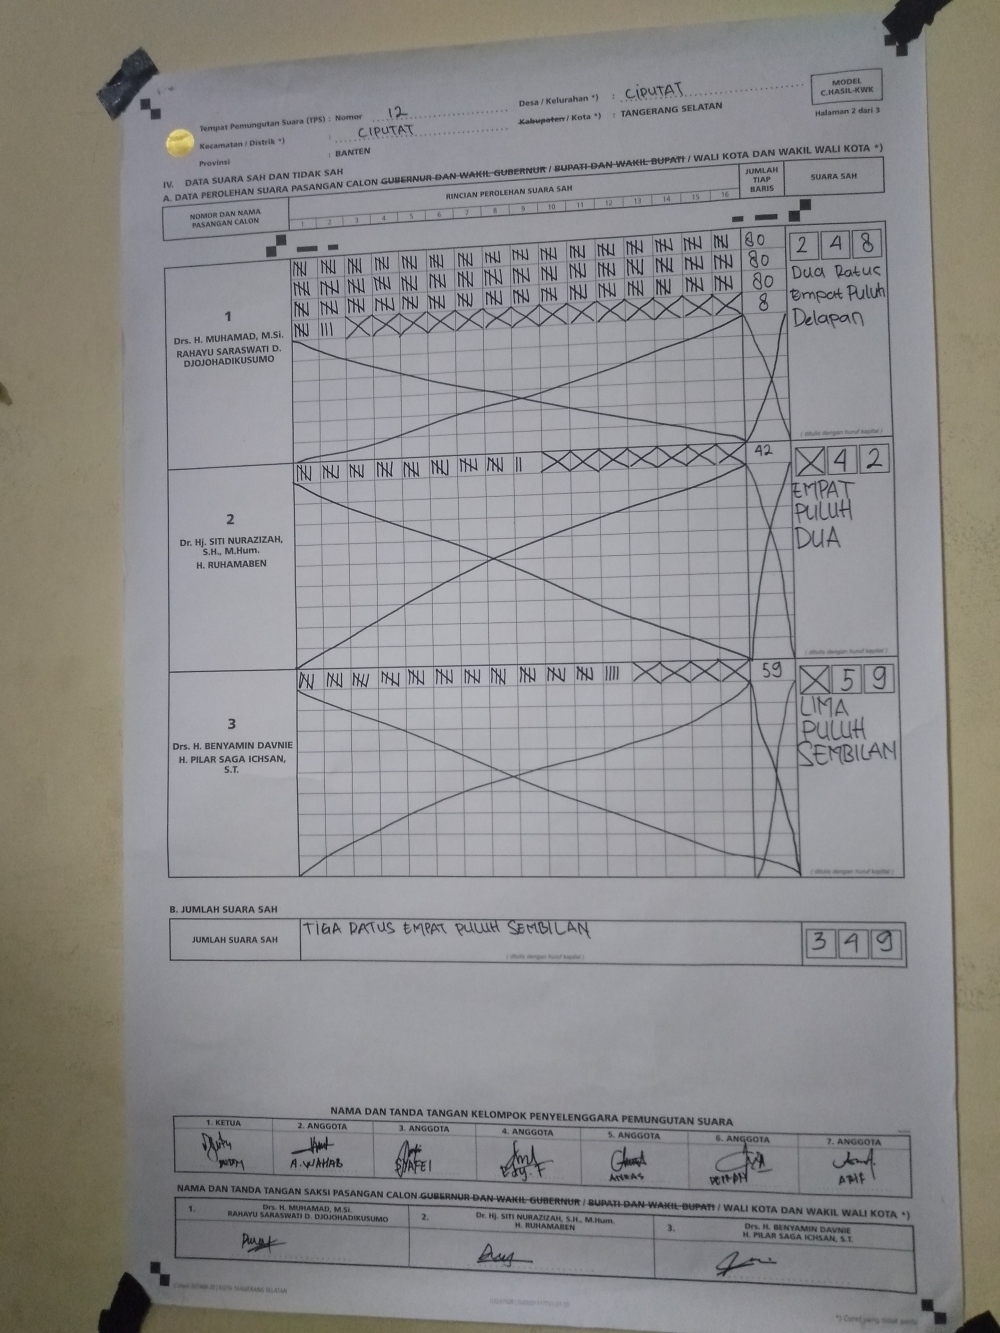 MODEL
C.HASIL-KWK
Halaman 2 dari 3
Tempat Pemungutan Suara (TPS) : Nomor 12
Desa / Kelurahan *) : CIPUTAT
Kecamatan / Distrik *) : CIPUTAT
Kabupaten / Kota *) : TANGERANG SELATAN
Provinsi : BANTEN
IV. DATA SUARA SAH DAN TIDAK SAH
A. DATA PEROLEHAN SUARA PASANGAN CALON GUBERNUR DAN WAKIL GUBERNUR / BUPATI DAN WAKIL BUPATI / WALI KOTA DAN WAKIL WALI KOTA *)
NOMOR DAN NAMA
PASANGAN CALON
RINCIAN PEROLEHAN SUARA SAH
1 2 3 4 5 6 7 8 9 10 11 12 13 14 15 16
JUMLAH
TIAP
BARIS
SUARA SAH
1
Drs. H. MUHAMAD, M.Si.
RAHAYU SARASWATI D.
DJOJOHADIKUSUMO
80
80
80
8
2 4 8
Dua Ratus
Empat Puluh
Delapan
( ditulis dengan huruf kapital )
2
Dr. Hj. SITI NURAZIZAH,
S.H., M.Hum.
H. RUHAMABEN
42
X 4 2
EMPAT
PULUH
DUA
( ditulis dengan huruf kapital )
3
Drs. H. BENYAMIN DAVNIE
H. PILAR SAGA ICHSAN,
S.T.
59
X 5 9
LIMA
PULUH
SEMBILAN
( ditulis dengan huruf kapital )
B. JUMLAH SUARA SAH
JUMLAH SUARA SAH
TIGA RATUS EMPAT PULUH SEMBILAN
( ditulis dengan huruf kapital )
3 4 9
NAMA DAN TANDA TANGAN KELOMPOK PENYELENGGARA PEMUNGUTAN SUARA
1. KETUA
2. ANGGOTA
3. ANGGOTA
4. ANGGOTA
5. ANGGOTA
6. ANGGOTA
7. ANGGOTA
A. WAHAB
SYAFEI
NAMA DAN TANDA TANGAN SAKSI PASANGAN CALON GUBERNUR DAN WAKIL GUBERNUR / BUPATI DAN WAKIL BUPATI / WALI KOTA DAN WAKIL WALI KOTA *)
1. Drs. H. MUHAMAD, M.Si.
RAHAYU SARASWATI D. DJOJOHADIKUSUMO
2. Dr. Hj. SITI NURAZIZAH, S.H., M.Hum.
H. RUHAMABEN
3. Drs. H. BENYAMIN DAVNIE
H. PILAR SAGA ICHSAN, S.T.